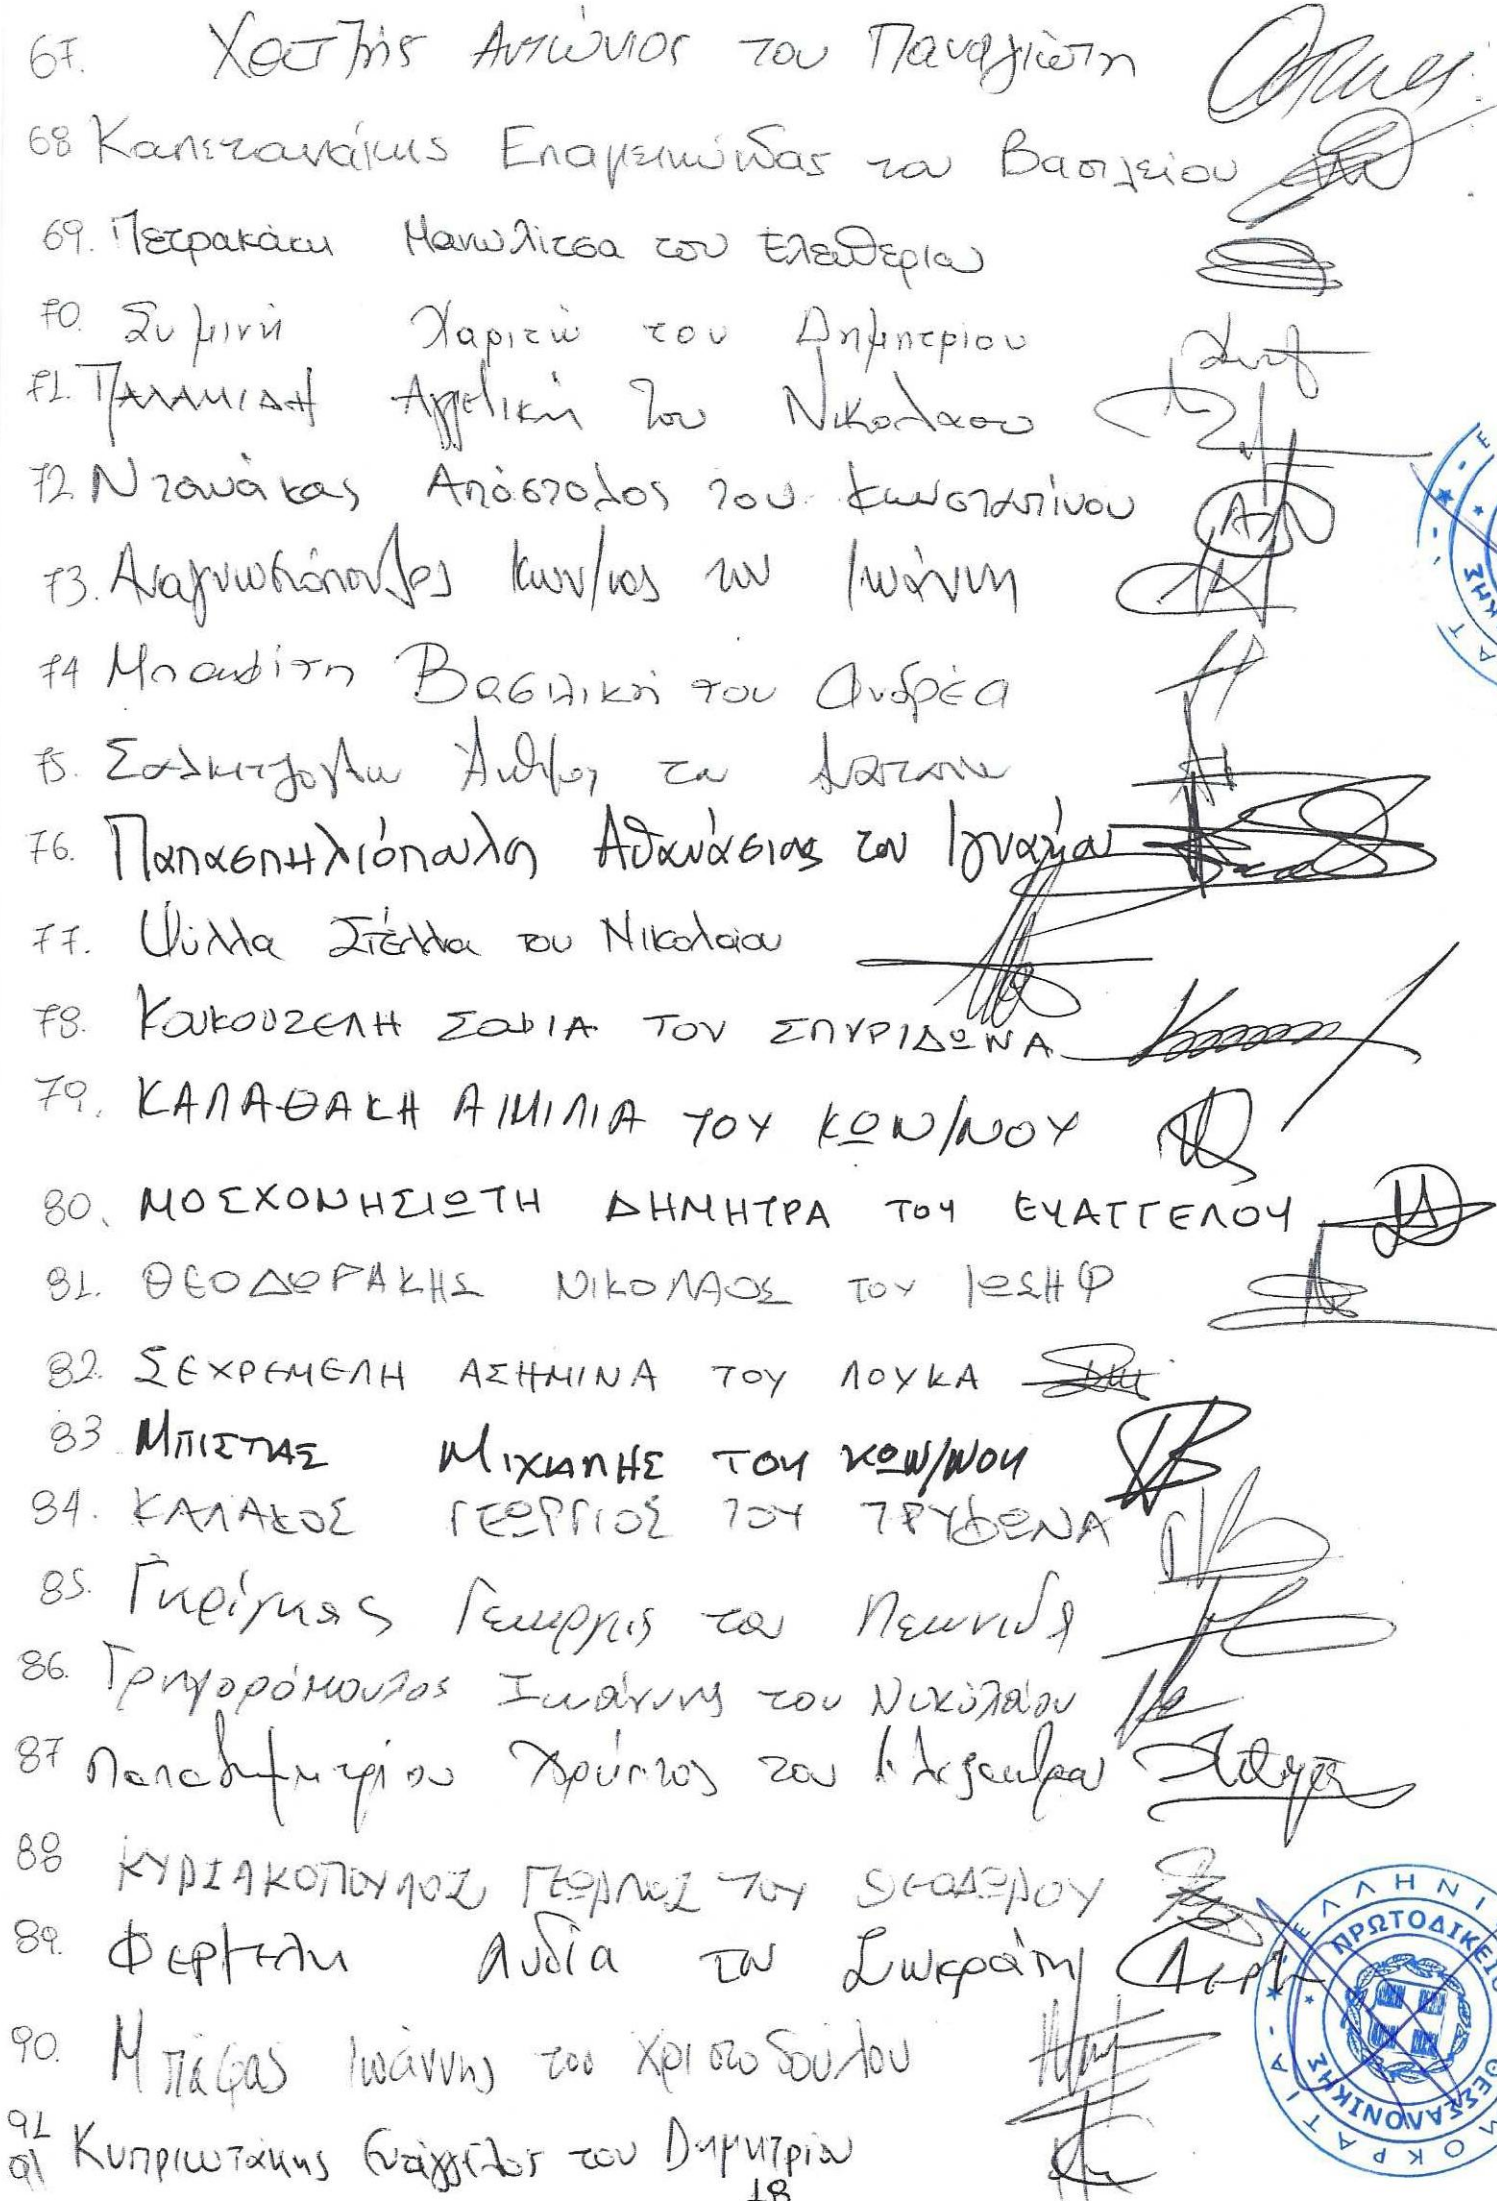 67. Χατζής Αντώνιος του Παναγιώτη
68 Καπετανάκης Επαμεινώνδας του Βασιλείου
69. Πετρακάκη Μανωλίτσα του Ελευθερίου
70. Συμινή Χαριτώ του Δημητρίου
71. ΠΑΛΑΜΙΔΗ Αγγελική του Νικολάου
72 Ντανάκας Απόστολος του Κωνσταντίνου
73. Αναγνωστόπουλος Κων/νος του Ιωάννη
74 Βασιλική του Ανδρέα
75. Άνθιμος του
76. Παπασπηλιόπουλος Αθανάσιος του Ιγνατίου
77. Ψύλλα Στέλλα του Νικολάου
78. ΚΟΥΚΟΥΖΕΛΗ ΣΟΦΙΑ ΤΟΥ ΣΠΥΡΙΔΩΝΑ
79. ΚΑΛΑΘΑΚΗ ΑΙΜΙΛΙΑ ΤΟΥ ΚΩΝ/ΝΟΥ
80. ΜΟΣΧΟΝΗΣΙΩΤΗ ΔΗΜΗΤΡΑ ΤΟΥ ΕΥΑΓΓΕΛΟΥ
81. ΘΕΟΔΩΡΑΚΗΣ ΝΙΚΟΛΑΟΣ ΤΟΥ ΙΩΣΗΦ
82. ΣΕΧΡΕΜΕΛΗ ΑΣΗΜΙΝΑ ΤΟΥ ΛΟΥΚΑ
83 ΜΠΙΣΤΑΣ ΜΙΧΑΛΗΣ ΤΟΥ ΚΩΝ/ΝΟΥ
84. ΚΑΛΑΚΟΣ ΓΕΩΡΓΙΟΣ ΤΟΥ ΤΡΥΦΩΝΑ
85. Γκρίγκας Γεώργιος του Λεωνίδα
86. Γρηγορόπουλος Ιωάννης του Νικολάου
87 Παπαδημητρίου Χρήστος του Αλεξάνδρου
88 ΚΥΡΙΑΚΟΠΟΥΛΟΣ ΓΕΩΡΓΙΟΣ ΤΟΥ ΘΕΟΔΩΡΟΥ
89. Φερτέλη Λυδία του Σωκράτη
90. Μπάφας Ιωάννης του Χριστοδούλου
91
91 Κυπριωτάκης Ευάγγελος του Δημητρίου
18
ΕΛΛΗΝΙ
ΟΚΡΑΤΙΑ
ΠΡΩΤΟΔΙΚΕΙΟ
ΘΕΣΣΑΛΟΝΙΚΗΣ